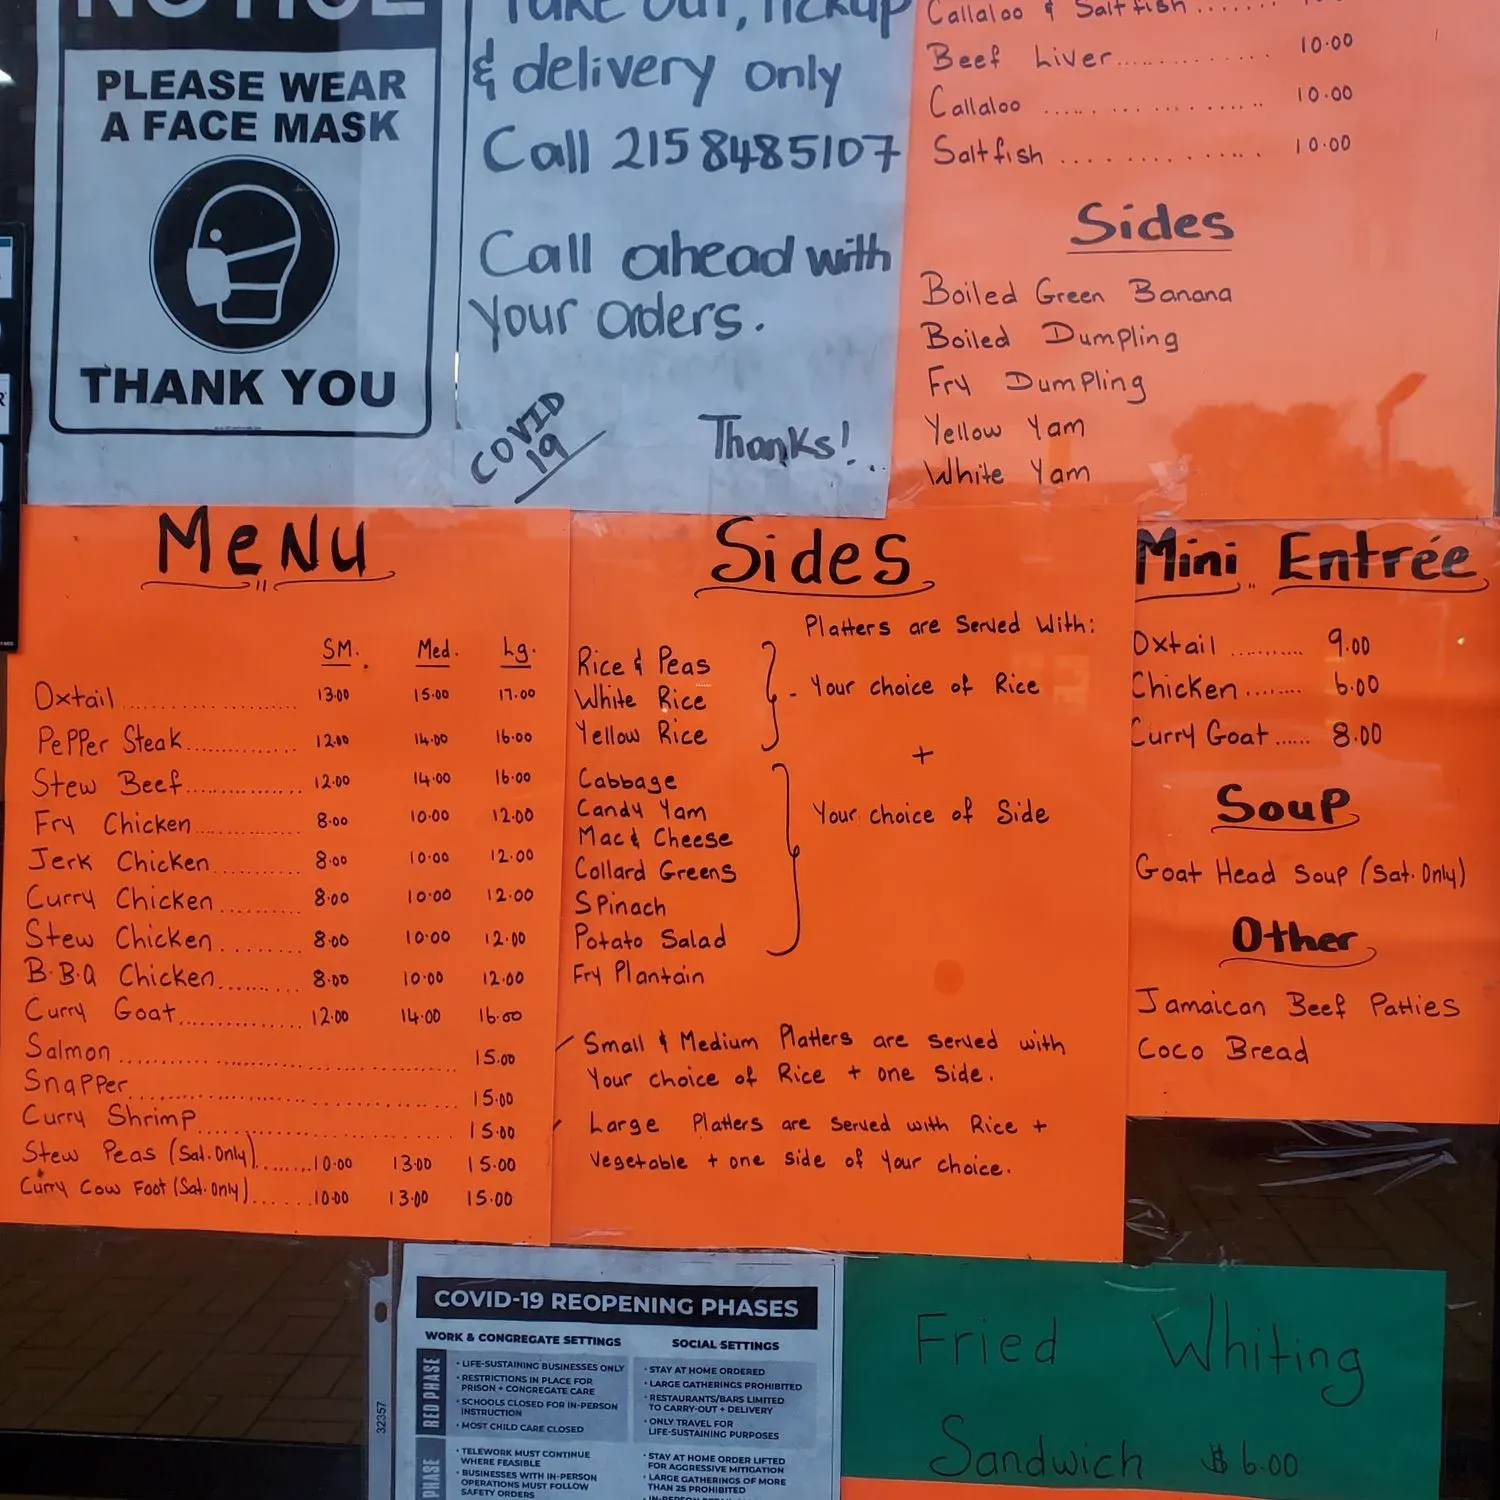 NOTICE
PLEASE WEAR
A FACE MASK
THANK YOU
Take out, Pickup
& delivery only
Call 215 8485107
Call ahead with
your orders.
COVID
19
Thanks!
Callaloo & Saltfish.......
Beef Liver.............. 10.00
Callaloo .................. 10.00
Saltfish .................. 10.00
Sides
Boiled Green Banana
Boiled Dumpling
Fry Dumpling
Yellow Yam
White Yam
MeNU
SM. Med. Lg.
Oxtail...................... 13.00 15.00 17.00
Pepper Steak............. 12.00 14.00 16.00
Stew Beef................ 12.00 14.00 16.00
Fry Chicken.............. 8.00 10.00 12.00
Jerk Chicken............ 8.00 10.00 12.00
Curry Chicken.......... 8.00 10.00 12.00
Stew Chicken.......... 8.00 10.00 12.00
B.B.Q Chicken.......... 8.00 10.00 12.00
Curry Goat.............. 12.00 14.00 16.00
Salmon.............................. 15.00
Snapper............................ 15.00
Curry Shrimp...................... 15.00
Stew Peas (Sat. Only)........10.00 13.00 15.00
Curry Cow Foot (Sat. Only).......10.00 13.00 15.00
Sides
Platters are Served With:
Rice & Peas
White Rice
Yellow Rice
- Your choice of Rice
+
Cabbage
Candy Yam
Mac & Cheese
Collard Greens
Spinach
Potato Salad
Fry Plantain
Your choice of Side
Small & Medium Platters are served with
Your choice of Rice + one side.
Large Platters are served with Rice +
Vegetable + one side of your choice.
Mini Entrée
Oxtail ........... 9.00
Chicken........ 6.00
Curry Goat...... 8.00
Soup
Goat Head Soup (Sat. Only)
Other
Jamaican Beef Patties
Coco Bread
COVID-19 REOPENING PHASES
WORK & CONGREGATE SETTINGS
SOCIAL SETTINGS
RED PHASE
• LIFE-SUSTAINING BUSINESSES ONLY
• RESTRICTIONS IN PLACE FOR
PRISON + CONGREGATE CARE
• SCHOOLS CLOSED FOR IN-PERSON
INSTRUCTION
• MOST CHILD CARE CLOSED
• STAY AT HOME ORDERED
• LARGE GATHERINGS PROHIBITED
• RESTAURANTS/BARS LIMITED
TO CARRY-OUT + DELIVERY
• ONLY TRAVEL FOR
LIFE-SUSTAINING PURPOSES
PHASE
• TELEWORK MUST CONTINUE
WHERE FEASIBLE
• BUSINESSES WITH IN-PERSON
OPERATIONS MUST FOLLOW
SAFETY ORDERS
• STAY AT HOME ORDER LIFTED
FOR AGGRESSIVE MITIGATION
• LARGE GATHERINGS OF MORE
THAN 25 PROHIBITED
32357
Fried Whiting
Sandwich $6.00